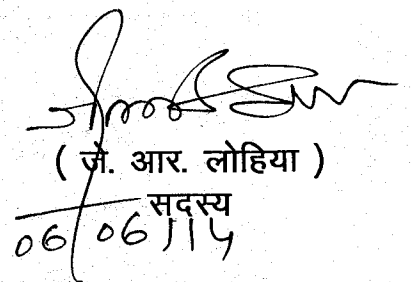 ( जे. आर. लोहिया )
सदस्य
06/06/14